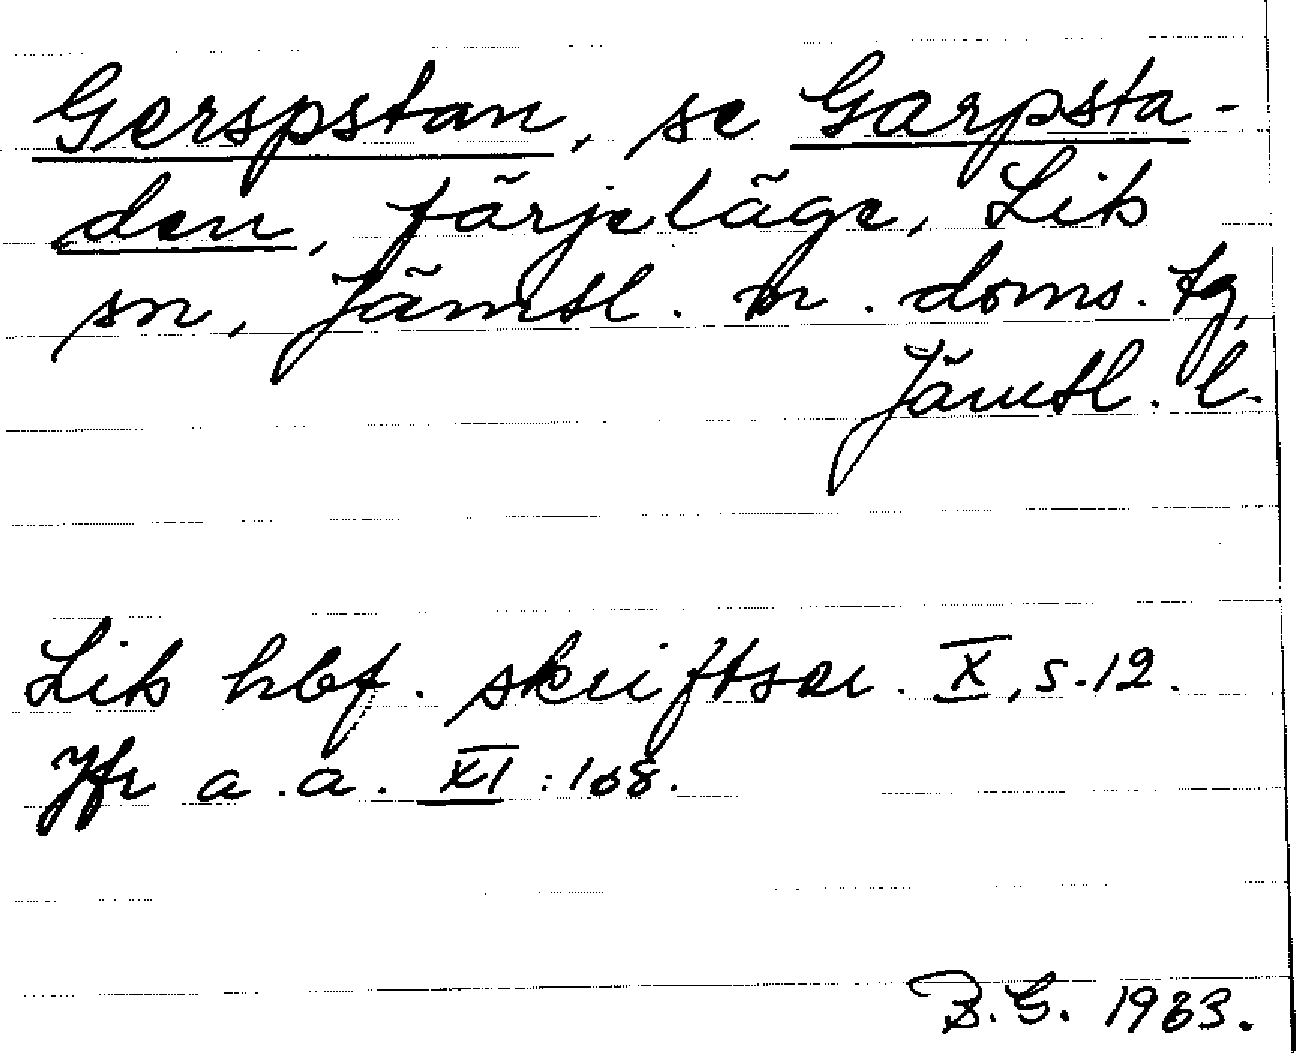 Gerspstan, se Garpsta-
den, färjeläge, Lits
sn, Jämtl. n. doms. tg,
Jämtl. l.
Lits hbf. skriftser. X, s. 12.
Jfr a. a. XI : 108.
B. G. 1963.